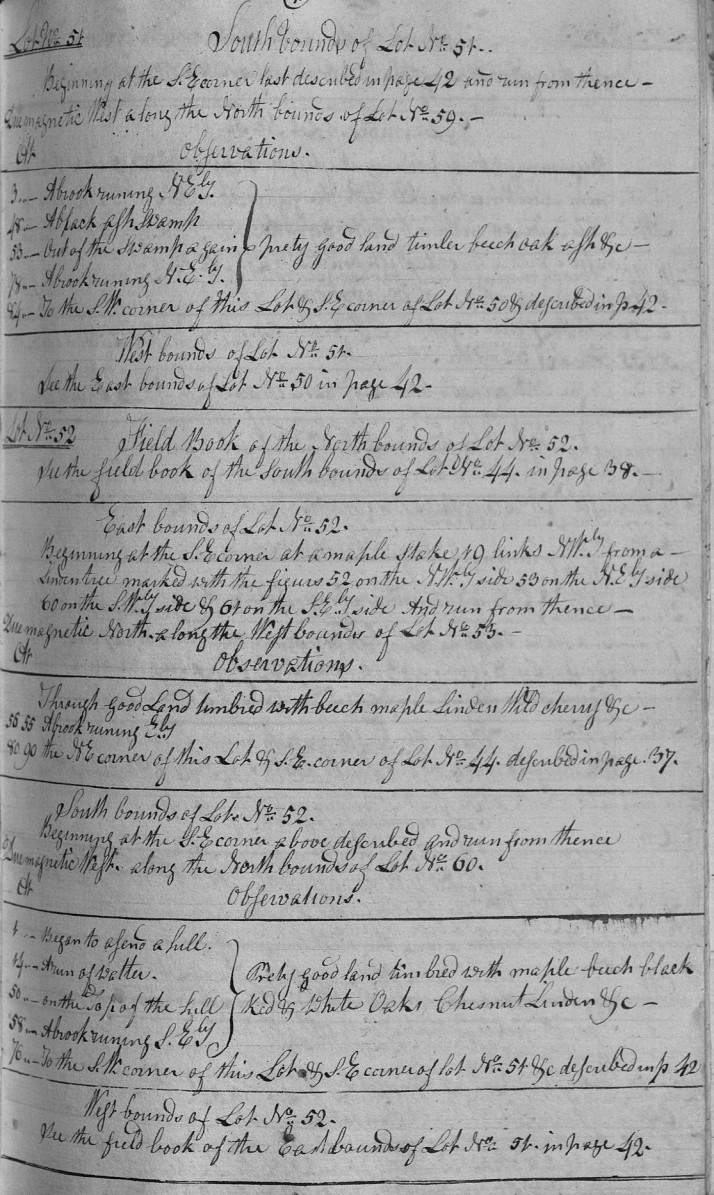 Lot No. 51
South bounds of Lot No. 51.
Beginning at the S.E corner last described in page 42 and run from thence -
Due magnetic West along the North bounds of Lot No. 59. -
Observations.
3 .. - A brook runing N.Ely.
48 - A black ash swamp
53 - Out of the swamp again } prety good land timber beech oak ash &c -
78 - A brook runing N.E.ly.
84 .. - To the S.W. corner of this Lot & S.E corner of Lot No. 50 & described in p 42.
West bounds of Lot No. 51.
See the East bounds of Lot No. 50 in page 42.
Lot No. 52
Field Book of the North bounds of Lot No. 52.
See the field book of the South bounds of Lot No. 44. in page 38. -
East bounds of Lot No. 52.
Beginning at the S.E corner at a maple stake 19 links N.W.ly from a -
Linden tree marked with the figurs 52 on the N.W.ly side 53 on the N.Ely side
60 on the S.W.ly side & 61 on the S.E.ly side And run from thence -
Due magnetic North. along the West bounds of Lot No. 53. -
Observations.
Through good Land timbred with beech maple Linden Wild cherry &c -
55 55 A brook runing Ely
80 90 the N.E corner of this Lot & S.E. corner of Lot No. 44. described in page. 37.
South bounds of Lot No. 52.
Beginning at the S.E corner above described and run from thence
Due magnetic West. along the North bounds of Lot No. 60.
Observations.
1 .. - Began to asend a hill.
14 .. - A run of watter.
50 .. - on the top of the hill
58 .. - A brook runing S.Ely
Prety good land timbred with maple beech black
Red & White Oaks Chesnut Linden &c -
76 .. - To the S.W. corner of this Lot & S.E corner of lot No. 51 &c described in p 42
West bounds of Lot No. 52.
See the field book of the East bounds of Lot No. 51. in page 42.